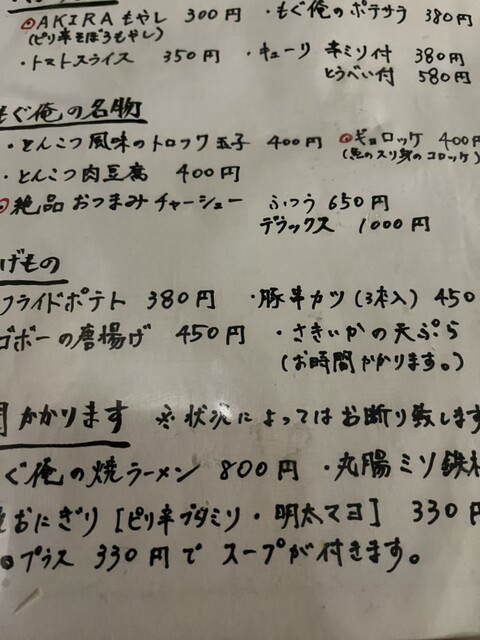 ◎AKIRAもやし 300円 ・もぐ俺のポテサラ 380円
(ピリ辛そぼろもやし)
・トマトスライス 350円 ・キューリ 辛ミソ付 380円
とうべい付 580円
もぐ俺の名物
・とんこつ風味のトロックワ玉子 400円 ◎ギョロッケ 400円
(魚のスリ身のコロッケ)
・とんこつ肉豆腐 400円
◎絶品おつまみチャーシュー ふつう 650円
デラックス 1000円
げもの
フライドポテト 380円 ・豚串カツ(3本入) 450
ゴボーの唐揚げ 450円 ・さきいかの天ぷら
(お時間かかります。)
間かかります ※状況によってはお断り致します
ぐ俺の焼ラーメン 800円 ・丸腸ミソ鉄
おにぎり[ピリ辛ブタミソ・明太マヨ] 330円
プラス 330円でスープが付きます。